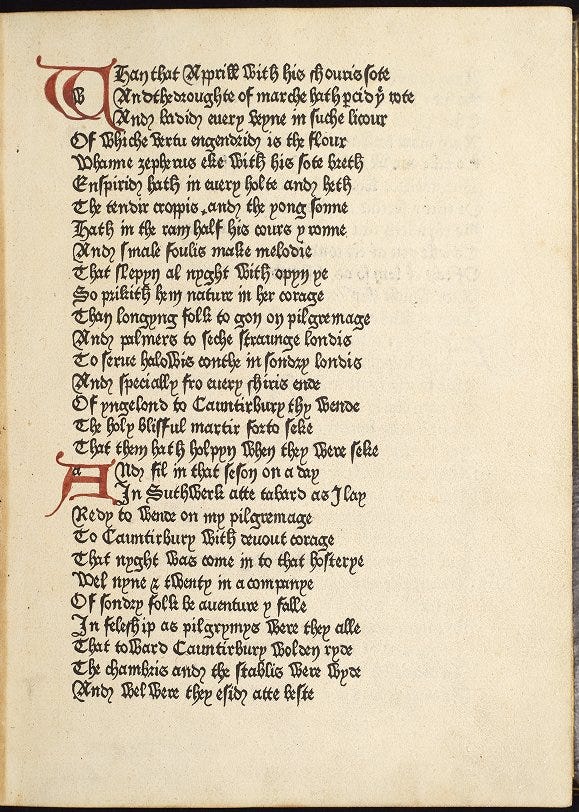 WHan that Apprill with his shouris sote
And the droughte of marche hath percid þe rote
And badid euery veyne in suche licour
Of whiche vertu engendrid is the flour
Whanne zepherus eke with his sote breth
Enspirid hath in euery holte and heth
The tendir croppis, and the yong sonne
Hath in the ram half his cours y ronne
And smale foulis make melodie
That slepyn al nyght with opyn ye
So prikith hem nature in her corage
Than longyng folk to gon on pilgremage
And palmers to seche straunge londis
To serue halowis couthe in sondry londis
And specially fro euery shiris ende
Of yngelond to Cauntirbury thy wende
The holy blisful martir forto seke
That them hath holpyn when they were seke
And fil in that seson on a day
In Suthwerk atte tabard as I lay
Redy to wende on my pilgremage
To Cauntirbury with deuout corage
That nyght was come in to that hosterye
Wel nyne & twenty in a companye
Of sondry folk be auenture y falle
In feleship as pilgrymys were they alle
That toward Cauntirbury wolden ryde
The chambris and the stablis were wyde
And wel were they esid atte beste